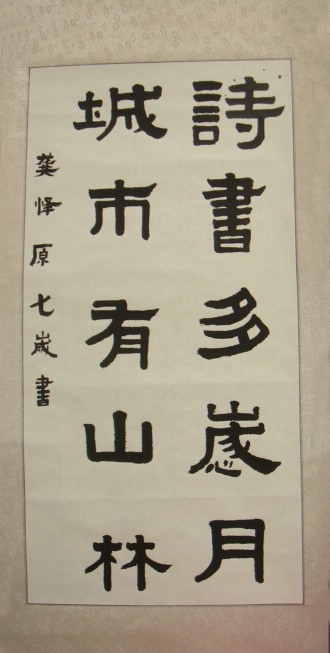 詩書多歲月
城市有山林
龔怿原七歲書